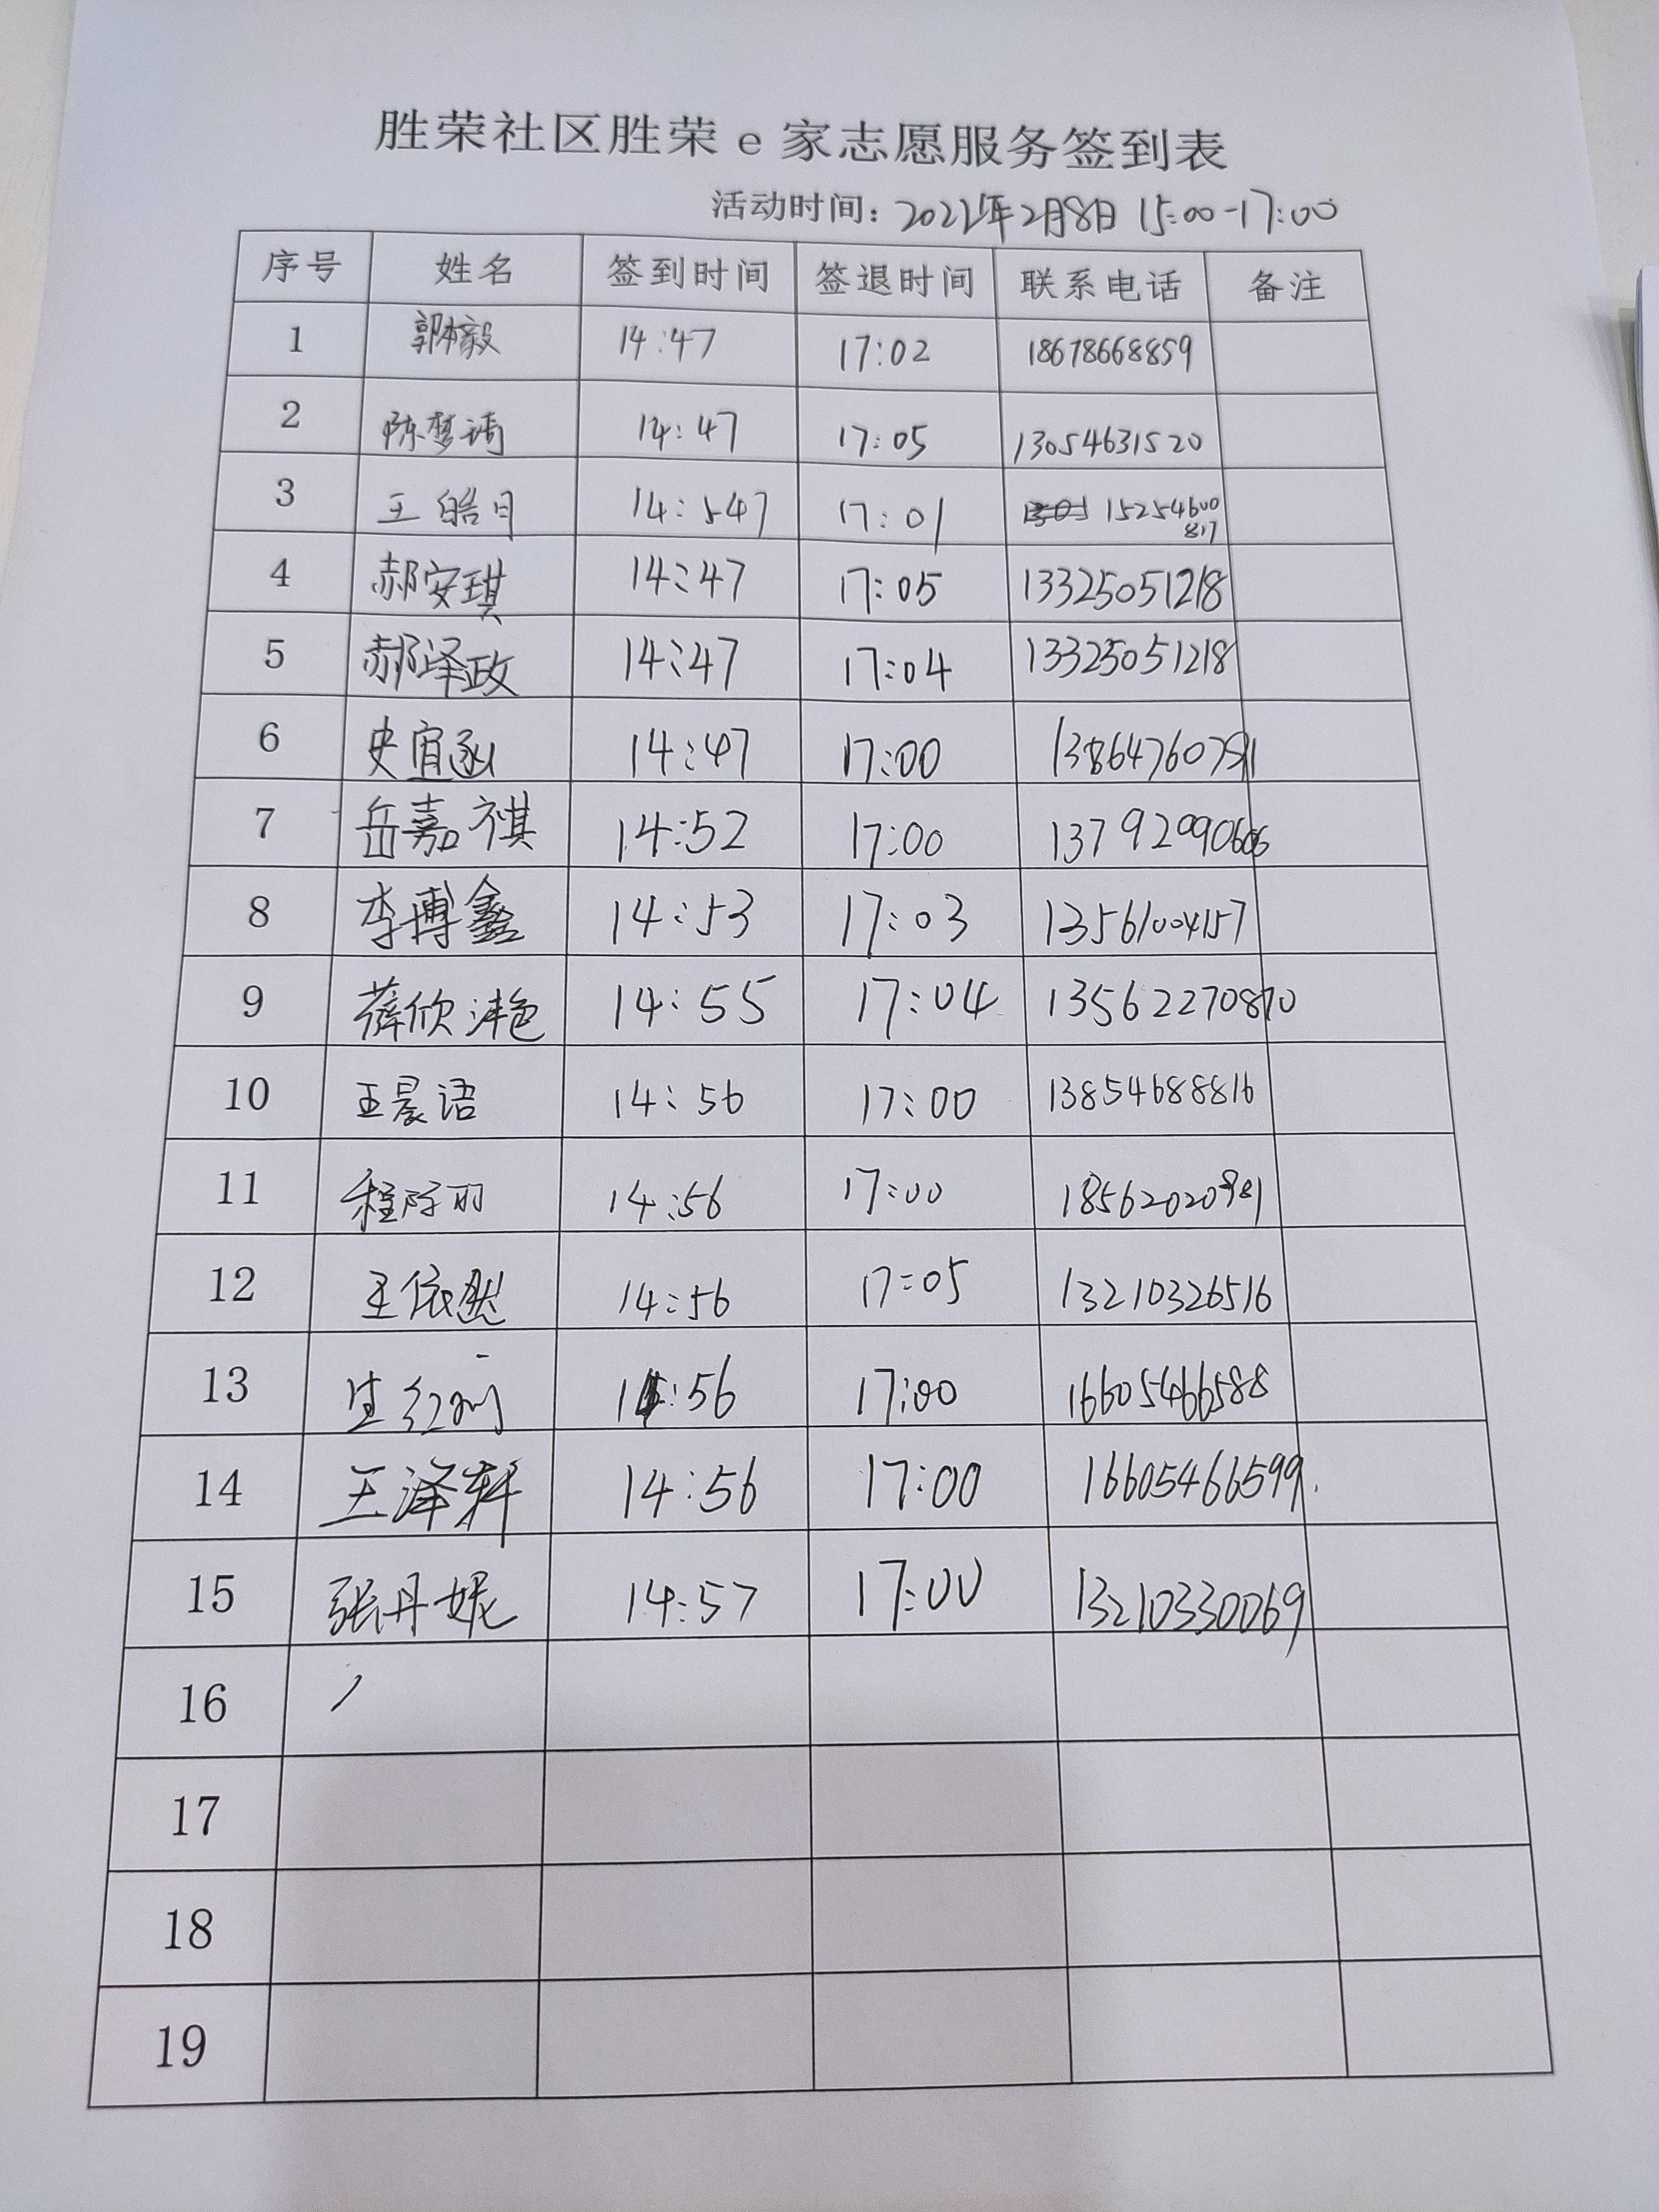 胜荣社区胜荣 e 家志愿服务签到表
活动时间：2022年2月8日 15:00-17:00
序号 姓名 签到时间 签退时间 联系电话 备注
1 郭本毅 14:47 17:02 18678668859
2 陈梦琦 14:47 17:05 13054631520
3 王皓月 14:547 17:01 15254600
817
4 郝安琪 14:47 17:05 13325051218
5 郝泽政 14:47 17:04 13325051218
6 史宜函 14:47 17:00
7 岳嘉祺 14:52 17:00 13792990606
8 李博鑫 14:53 17:03 13561004157
9 蒋欣沣 14:55 17:04 13562270870
10 王晨语 14:56 17:00 13854688816
11 程 14:56 17:00 18562020981
12 王依然 14:56 17:05 13210326516
13 14:56 17:00 16605466588
14 王泽轩 14:56 17:00 16605466599.
15 张丹妮 14:57 17:00 13210330069
16
17
18
19